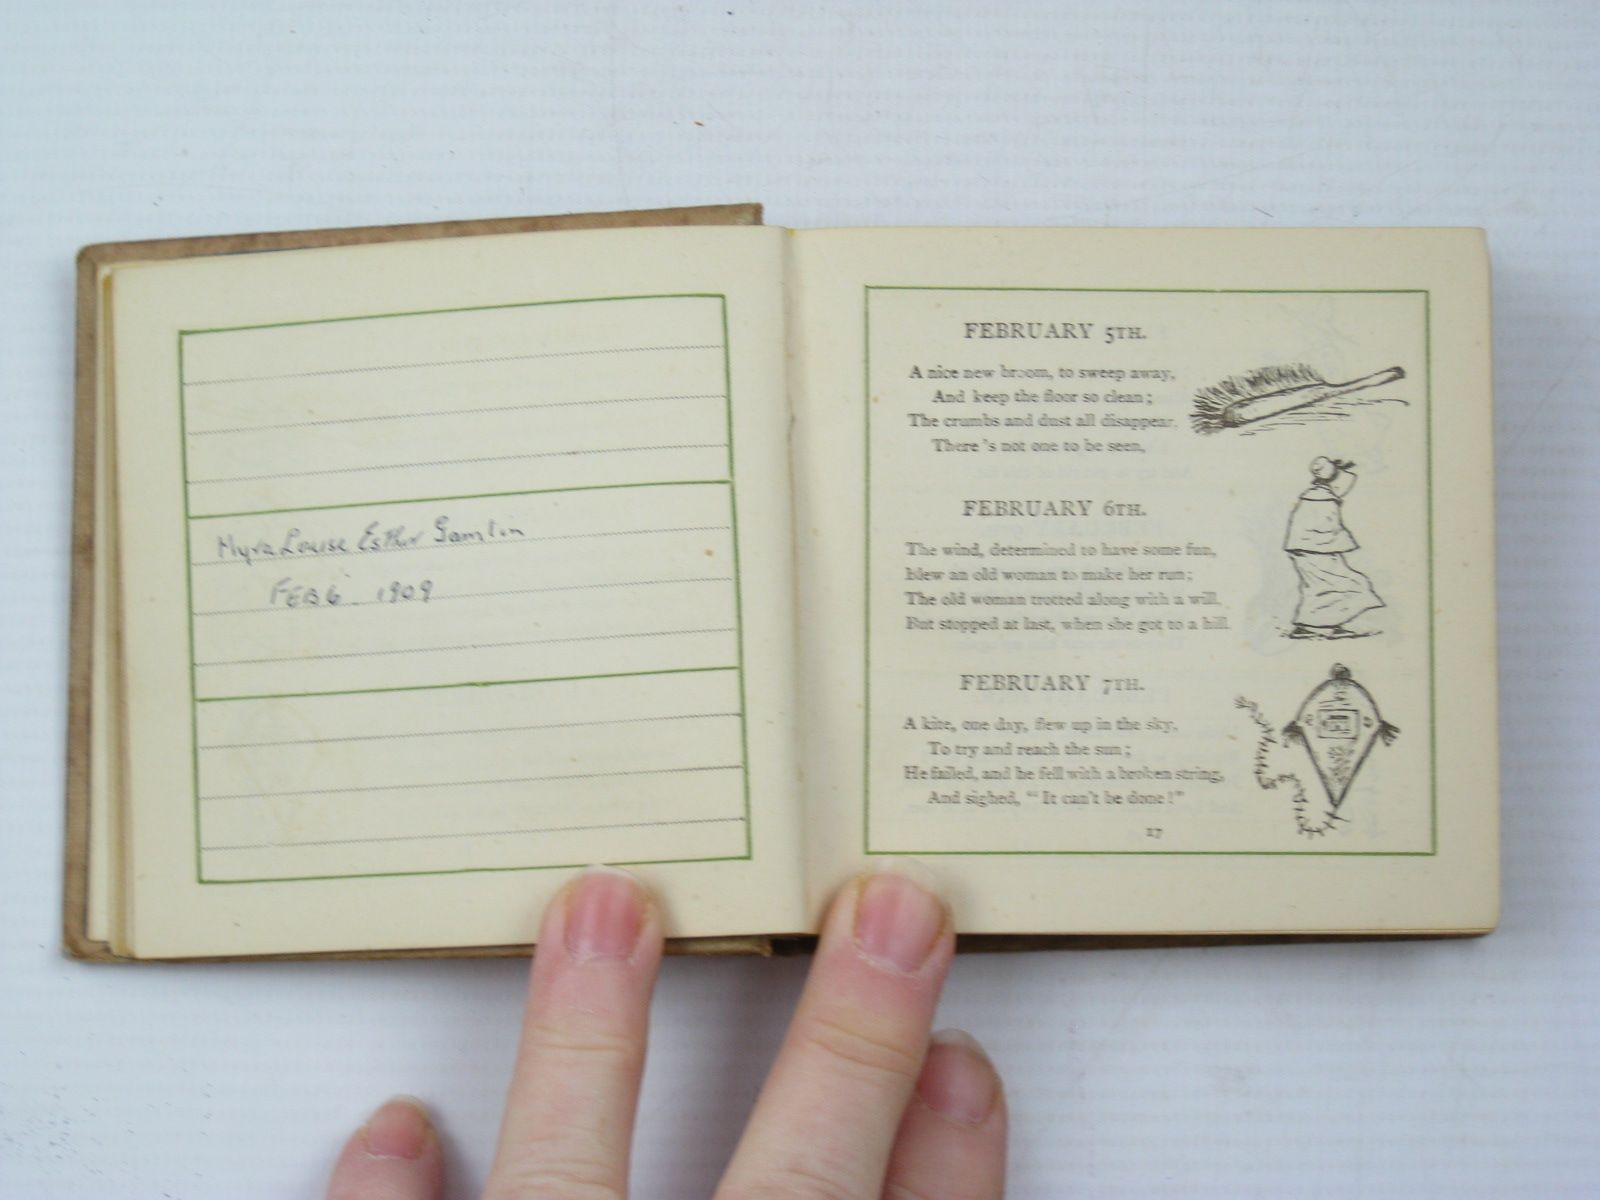 Myra Louise Esther Gamlin
FEB 6. 1909
FEBRUARY 5TH.
A nice new broom, to sweep away,
And keep the floor so clean;
The crumbs and dust all disappear,
There's not one to be seen,
FEBRUARY 6TH.
The wind, determined to have some fun,
Blew an old woman to make her run;
The old woman trotted along with a will,
But stopped at last, when she got to a hill.
FEBRUARY 7TH.
A kite, one day, flew up in the sky,
To try and reach the sun;
He failed, and he fell with a broken string,
And sighed, "It can't be done!"
17